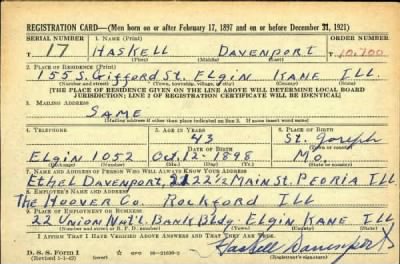 REGISTRATION CARD—(Men born on or after February 17, 1897 and on or before December 31, 1921)
SERIAL NUMBER 1. NAME (Print) ORDER NUMBER
T 17 HASKELL DAVENPORT T 10,700
(First) (Middle) (Last)
2. PLACE OF RESIDENCE (Print)
155 S. Gifford St. Elgin Kane Ill.
(Number and street) (Town, township, village, or city) (County) (State)
[THE PLACE OF RESIDENCE GIVEN ON THE LINE ABOVE WILL DETERMINE LOCAL BOARD
JURISDICTION; LINE 2 OF REGISTRATION CERTIFICATE WILL BE IDENTICAL]
3. MAILING ADDRESS
SAME
[Mailing address if other than place indicated on line 2. If same insert word same]
4. TELEPHONE 5. AGE IN YEARS 6. PLACE OF BIRTH
43 St. Joseph
DATE OF BIRTH (Town or county)
Elgin 1052 Oct. 12 - 1898 Mo.
(Mo.) (Day) (Yr.) (State or country)
7. NAME AND ADDRESS OF PERSON WHO WILL ALWAYS KNOW YOUR ADDRESS
Ethel Davenport, 2122½ Main St. Peoria Ill
8. EMPLOYER'S NAME AND ADDRESS
The Hoover Co. Rockford Ill
9. PLACE OF EMPLOYMENT OR BUSINESS
22 Union Nat'l. Bank Bldg. Elgin Kane Ill
(Number and street or R. F. D. number) (Town) (County) (State)
I AFFIRM THAT I HAVE VERIFIED ABOVE ANSWERS AND THAT THEY ARE TRUE.
Haskell Davenport
D. S. S. Form 1
(Revised 1-1-42) (over) GPO 16—21630-2